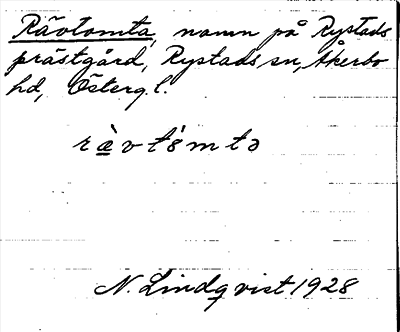 Rävtomta, namn på Rystads
prästgård, Rystads sn, Åkerbo
hd, Österg. l.
ræ̀vtómtə
N. Lindqvist 1928